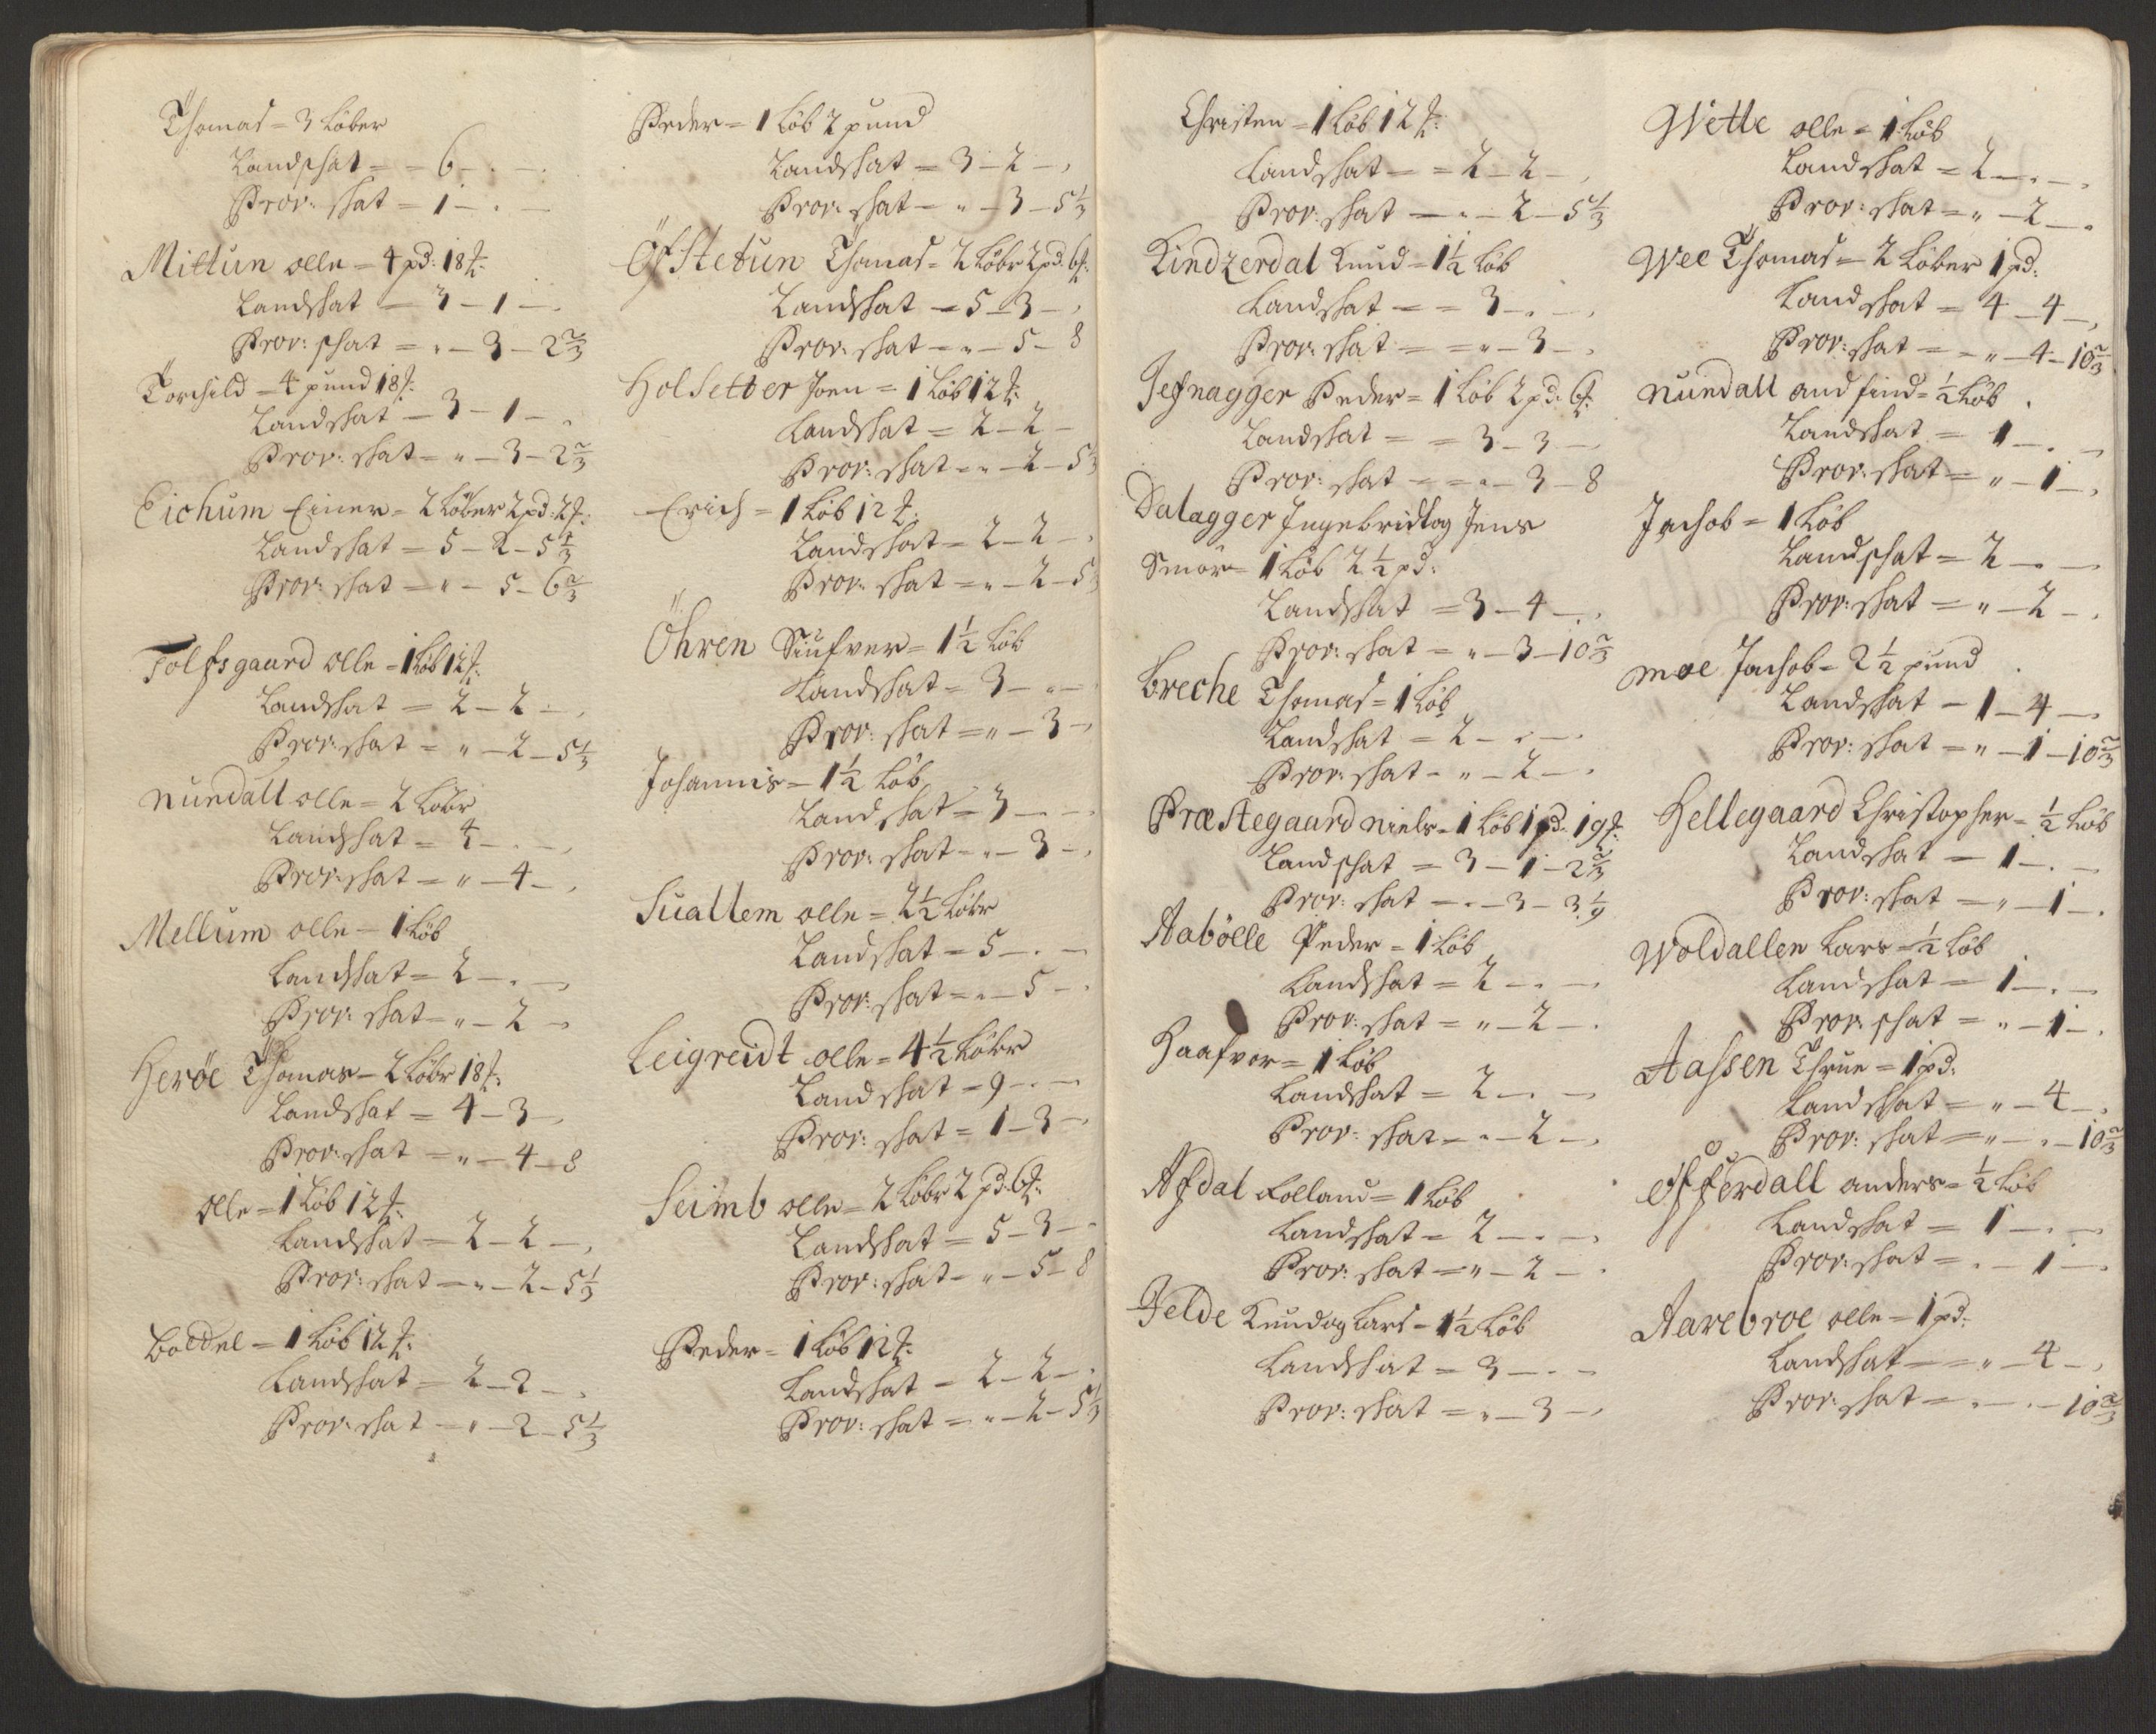 Thomas = 3 Løber
Landschat = – 6 – . – .
Prov: skat = 1 – . –
Mittun olle = 4 pd: 18 ℔:
Landskat – 3 – 1 – .
Prov: schat = „ – 3 – 2 2/3
Torchild – 4 pund 18 ℔:
Landskat – 3 – 1 – .
Prov: skat = „ – 3 – 2 2/3
Eichum Einer = 2 Løber 2 pd: 2 ℔:
Landskat = 5 – 2 – 5 1/3
Prov: skat = „ – 5 – 6 2/3
Tolfsgaard olle = 1 Løb 12 ℔:
Landskat = 2 – 2 – ,
Prov: skat = „ – 2 – 5 1/3
Nundall olle = 2 Løbr
Landskat = 4 – . – ,
Prov: skat = „ – 4 – ,
Mellum olle – 1 Løb
Landskat = 2 – . –
Prov: skat = „ – 2 –
Herøe Thomas – 2 Løbr 18 ℔:
Landskat = 4 – 3 –
Prov: skat = „ – 4 – 8
olle = 1 Løb 12 ℔:
Landskat – 2 – 2 – ,
Prov: skat = „ – 2 – 5 1/3
Boedel = 1 Løb 12 ℔:
Landskat = 2 – 2 – .
Prov: skat – „ – 2 – 5 1/3
Peder = 1 Løb 2 pund
Landskat = 3 – 2 – ,
Prov: skat – „ – 3 – 5 1/3
Öfstetun Thomas = 2 Løbr 2 pd: 6 ℔:
Landskat = 5 – 3 – ,
Prov: skat = „ – 5 – 8
Holsetter Joen = 1 Løb 12 ℔:
Landskat = 2 – 2 –
Prov: skat = „ – 2 – 5 1/3
Erich = 1 Løb 12 ℔:
Landskat – 2 – 2 – .
Prov: skat = „ – 2 – 5 1/3
Öhren Siufver = 1 1/2 Løb
Landskat = 3 – . –
Prov: skat = „ – 3 –
Johannis – 1 1/2 Løb
Landskat = 3 – –
Prov: skat = „ – 3 – ,
Suallem olle = 2 1/2 Løbr
Landskat = 5 – . –
Prov: skat = „ – 5 – .
Leigreidt olle = 4 1/2 Løbr
Landskat = 9 – . –
Prov: skat = 1 – 3 –
Seimb olle = 2 Løbr 2 pd: 6 ℔:
Landskat = 5 – 3 –
Prov: skat = „ – 5 – 8
Peder = 1 Løb 12 ℔:
Landskat – 2 – 2 – .
Prov: skat = „ – 2 – 5 1/3
Christen = 1 Løb 12 ℔:
Landskat – = 2 – 2 – ,
Prov: skat – „ – 2 – 5 1/3
Kindzerdal Knud = 1 1/2 Løb
Landskat – = 3 – . – ,
Prov: skat – = „ – 3 – .
Jefnagger Peder = 1 Løb 2 pd: 6 ℔:
Landskat – = 3 – 3 –
Prov: skat – = „ – 3 – 8
Dalagger Ingebridt og Jens
Smör = 1 Løb 2 1/2 pd:
Landskat = 3 – 4 – .
Prov: skat = „ – 3 – 10 2/3
Breche Thomas = 1 Løb
Landskat = 2 – . – .
Prov: skat – „ – 2 – .
Præstegaard Niels – 1 Løb 1 pd: 19 ℔:
Landschat = 3 – 1 – 2 2/3
Prov: skat – „ – 3 – 3 1/9
Aabölle Peder = 1 Løb
Landskat = 2 – . –
Prov: skat = „ – 2 – .
Haafvor = 1 Løb
Landskat = 2 – . –
Prov: skat – „ – 2 – ,
Afdal Folland = 1 Løb
Landskat = 2 – . –
Prov: skat = „ – 2 – .
Jelde Knud og Lars – 1 1/2 Løb
Landskat = 3 – . –
Prov: skat = „ – 3 – ,
Wette olle = 1 Løb
Landskat = 2 – . – .
Prov: skat = „ – 2 – .
Wee Thomas – 2 Løber 1 pd:
Landskat = 4 – 4 – ,
Prov: skat – = „ – 4 – 10 2/3
Nundall Andfind = 1/2 Løb
Landskat = 1 – . –
Prov: skat = „ – 1 – ,
Jachob = 1 Løb
Landschat = 2 – . –
Prov: skat = „ – 2 – .
Moe Jachob = 2 1/2 pund
Landskat – 1 – 4 – .
Prov: skat = „ – 1 – 10 2/3
Hellegaard Christopher – 1/2 Løb
Landskat – 1 – . –
Prov: skat – „ – 1 – .
Woldallen Lars – 1/2 Løb
Landskat = 1 – . –
Prov: schat = „ – 1 – .
Aassen Thrue = 1 pd:
Landskat = „ – 4 – .
Prov: skat = „ – „ – 10 2/3
Offerdall anders = 1/2 Løb
Landskat = 1 – . –
Prov: skat = „ – 1 – .
Aarebroe olle = 1 pd:
Landskat – = „ – 4 – ,
Prov: skat = „ – . – 10 2/3